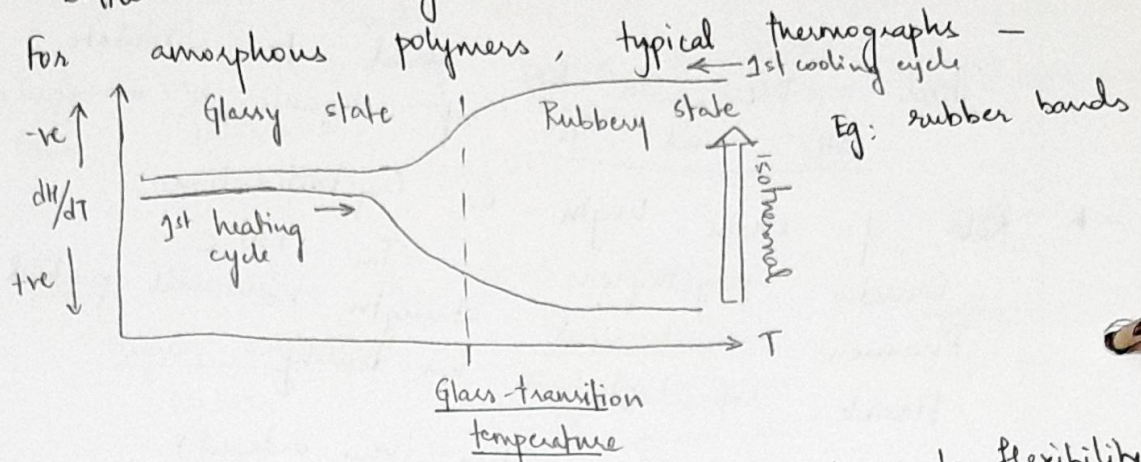 For amorphous polymers, typical thermographs –
← 1st cooling cycle
-ve ↑ Glassy state Rubbery state Eg: rubber bands
dH/dT
1st heating → cycle
Isothermal
+ve ↓
T
Glass-transition
temperature
flexibility